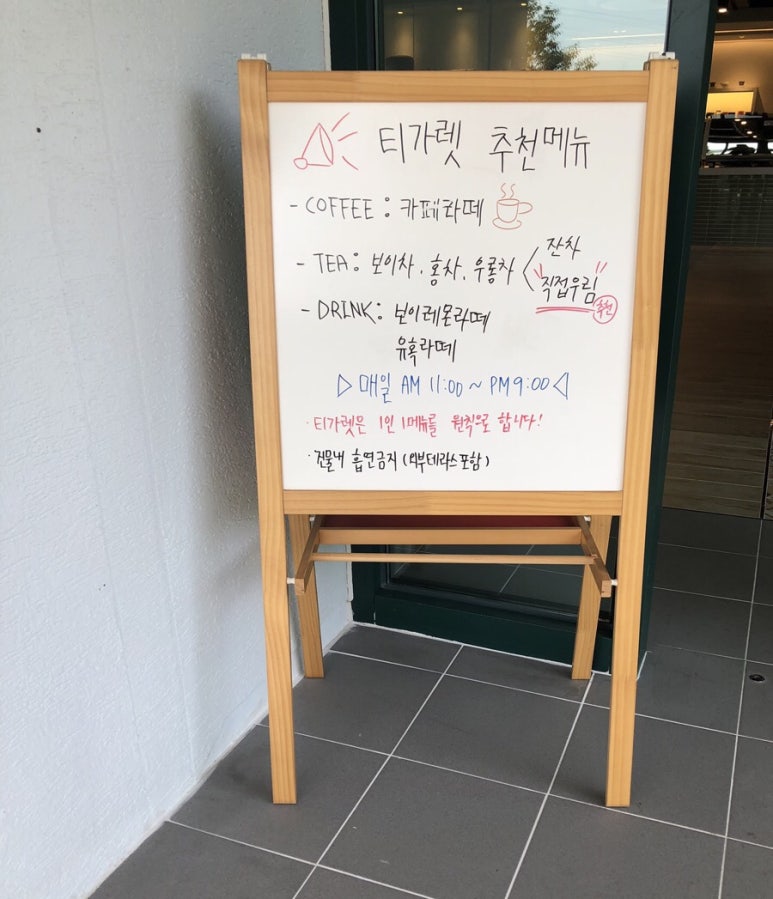 티가렛 추천메뉴
- COFFEE : 카페라떼
- TEA : 보이차, 홍차, 우롱차 < 잔차
"직접우림" 추천
- DRINK : 보이레몬라떼
유혹라떼
▷ 매일 AM 11:00 ~ PM 9:00 ◁
· 티가렛은 1인 1메뉴를 원칙으로 합니다!
· 건물내 흡연금지 (외부테라스포함)